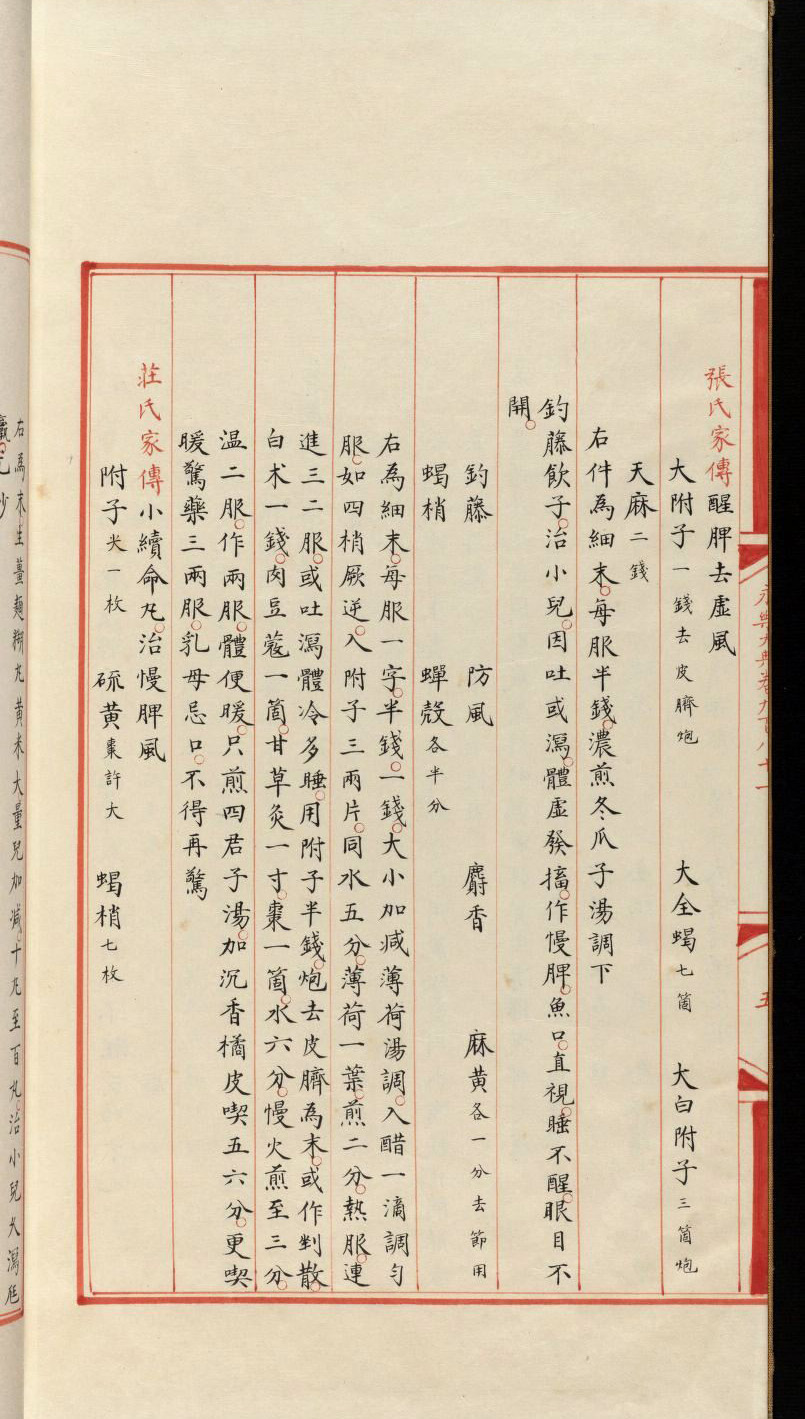 張氏家傳醒脾去虛風
大附子一錢去皮臍炮 大全蝎七箇 大白附子三箇炮
天麻二錢
右件為細末。每服半錢。濃煎冬瓜子湯調下
釣藤飲子。治小兒。因吐或瀉。體虛發搐。作慢脾。魚口。直視。睡不醒。眼目不
開。
釣藤 防風 麝香 麻黃各一分去節用
蝎梢 蟬殼各半分
右為細末。每服一字。半錢。一錢。大小加減薄荷湯調。入醋一滴調勻
服。如四梢厥逆。入附子三兩片。同水五分。薄荷一葉。煎二分。熱服。連
進三二服。或吐瀉體冷多睡。用附子半錢。炮去皮臍為末。或作剉散。
白朮一錢。肉豆蔻一箇。甘草炙一寸。棗一箇。水六分。慢火煎至三分。
温二服。作兩服。體便暖。只煎四君子湯。加沉香橘皮喫五六分。更喫
暖驚藥三兩服。乳母忌口。不得再驚
莊氏家傳小續命丸。治慢脾風
附子尖一枚 硫黃棗許大 蝎梢七枚
右為末生薑麵糊丸黃米大量兒加減。十丸至百丸。治小兒久瀉尪
羸。